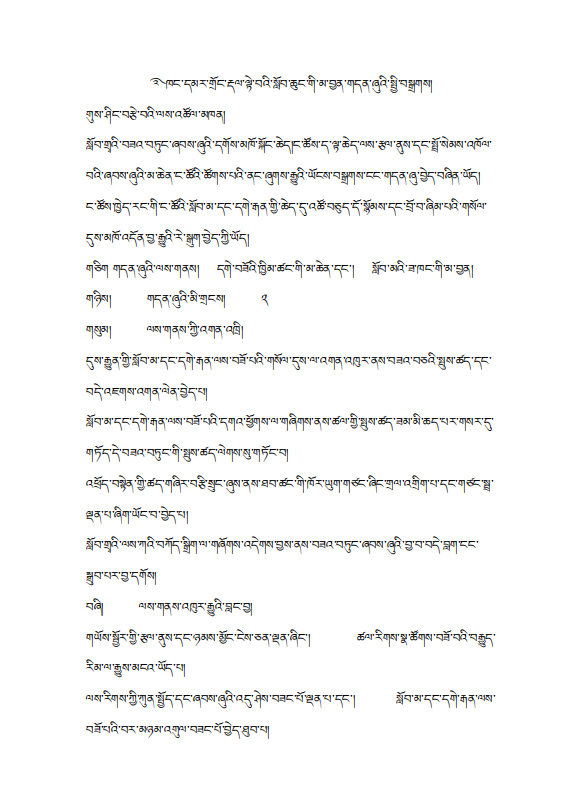 ༄ཁང་དམར་གྲོང་རྡལ་ལྟེ་བའི་སློབ་ཆུང་གི་མ་བྱན་གདན་ཞུའི་སྤྱི་བསྒྲགས།
གུས་ཤིང་བརྩེ་བའི་ལས་འཚོལ་མཁན།
སློབ་གྲྭའི་བཟའ་བཏུང་ཞབས་ཞུའི་དགོས་མཁོ་སྐོང་ཆེད།ང་ཚོས་ད་ལྟ་ཆེད་ལས་རྩལ་ནུས་དང་སྤྲོ་སེམས་འཁོལ་
བའི་ཞབས་ཞུའི་མ་ཆེན་ང་ཚོའི་ཚོགས་པའི་ནང་ཞུགས་རྒྱུའི་ཡོངས་བསྒྲགས་ངང་གདན་ཞུ་བྱེད་བཞིན་ཡོད།
ང་ཚོས་ཁྱེད་རང་གི་ང་ཚོའི་སློབ་མ་དང་དགེ་རྒན་གྱི་ཆེད་དུ་འཚོ་བཅུད་དོ་སྙོམས་དང་བྲོ་བ་ཞིམ་པའི་གསོལ་
དུས་མཁོ་འདོན་བྱ་རྒྱུའི་རེ་སྒུག་བྱེད་ཀྱི་ཡོད།
གཅིག གདན་ཞུའི་ལས་གནས། དགེ་བཟོའི་ཁྱིམ་ཚང་གི་མ་ཆེན་དང་། སློབ་མའི་ཟ་ཁང་གི་མ་བྱན།
གཉིས། གདན་ཞུའི་མི་གྲངས། ༢
གསུམ། ལས་གནས་ཀྱི་འགན་འཁྲི།
དུས་རྒྱུན་གྱི་སློབ་མ་དང་དགེ་རྒན་ལས་བཟོ་པའི་གསོལ་དུས་ལ་འགན་འཁུར་ནས་བཟའ་བཅའི་སྤུས་ཚད་དང་
བདེ་འཇགས་འགན་ལེན་བྱེད་པ།
སློབ་མ་དང་དགེ་རྒན་ལས་བཟོ་པའི་དགའ་ཕྱོགས་ལ་གཞིགས་ནས་ཚལ་གྱི་སྤུས་ཚད་ཟམ་མི་ཆད་པར་གསར་དུ་
གཏོད་དེ་བཟའ་བཏུང་གི་སྤུས་ཚད་ལེགས་སུ་གཏོང་བ།
འཕྲོད་བསྟེན་གྱི་ཚད་གཞིར་བརྩི་སྲུང་ཞུས་ནས་ཐབ་ཚང་གི་ཁོར་ཡུག་གཙང་ཞིང་གྲལ་འགྲིག་པ་དང་གཙང་སྦྲ་
ལྡན་པ་ཞིག་ཡོང་བ་བྱེད་པ།
སློབ་གྲྭའི་ལས་ཀའི་བཀོད་སྒྲིག་ལ་གཞོགས་འདེགས་བྱས་ནས་བཟའ་བཏུང་ཞབས་ཞུའི་བྱ་བ་བདེ་བླག་ངང་
སྒྲུབ་པར་བྱ་དགོས།
བཞི། ལས་གནས་འཁུར་རྒྱུའི་བླང་བྱ།
གཡོས་སྦྱོར་གྱི་རྩལ་ནུས་དང་ཉམས་མྱོང་ངེས་ཅན་ལྡན་ཞིང་། ཚལ་རིགས་སྣ་ཚོགས་བཟོ་བའི་བརྒྱུད་
རིམ་ལ་རྒྱུས་མངའ་ཡོད་པ།
ལས་རིགས་ཀྱི་ཀུན་སྤྱོད་དང་ཞབས་ཞུའི་འདུ་ཤེས་བཟང་པོ་ལྡན་པ་དང་། སློབ་མ་དང་དགེ་རྒན་ལས་
བཟོ་པའི་བར་མཉམ་འགྲུལ་བཟང་པོ་བྱེད་ཐུབ་པ།